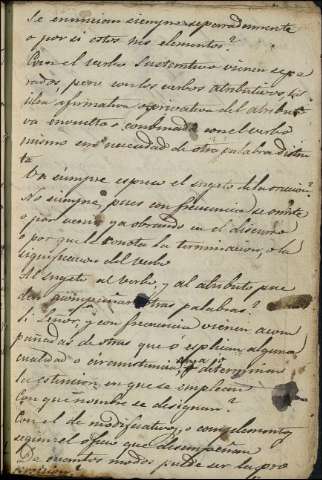 Se enuncian siempre separadamente
o por si estos tres elementos?
Con el verbo Sustantivo vienen sepa
rados, pero con los verbos atributivos la
idea afirmativa o privativa del atribu
va envuelta o combinada con el verbo
mismo sin necesidad de otra palabra distin
ta
Va siempre espreso el sugeto de la oracion?
No siempre, pues con frecuencia se omite
o por venir ya obrando en el discurso
o por que lo denota la terminacion, o la
significacion del verbo
Al sugeto al verbo, y al atributo pue
den acompañar otras palabras?
Si Señor, y con frecuencia vienen acom
pañadas de otras que o esplican alguna
cualidad o circunstancia suya o determinan
la estension en que se emplean
Con que nombre se designan?
Con el de modificativos, o complementos
segun el oficio que desempeñan
De cuantos modos puede ser la pro